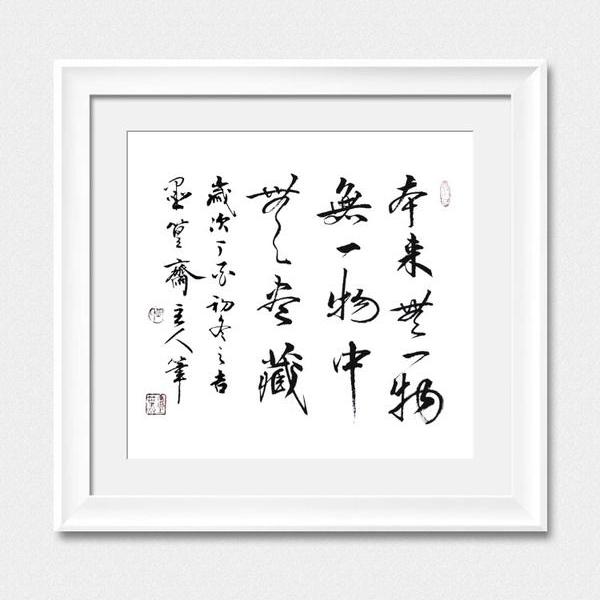 本来無一物
無一物中
無尽藏
歲次丁酉初冬之吉
墨齋主人筆